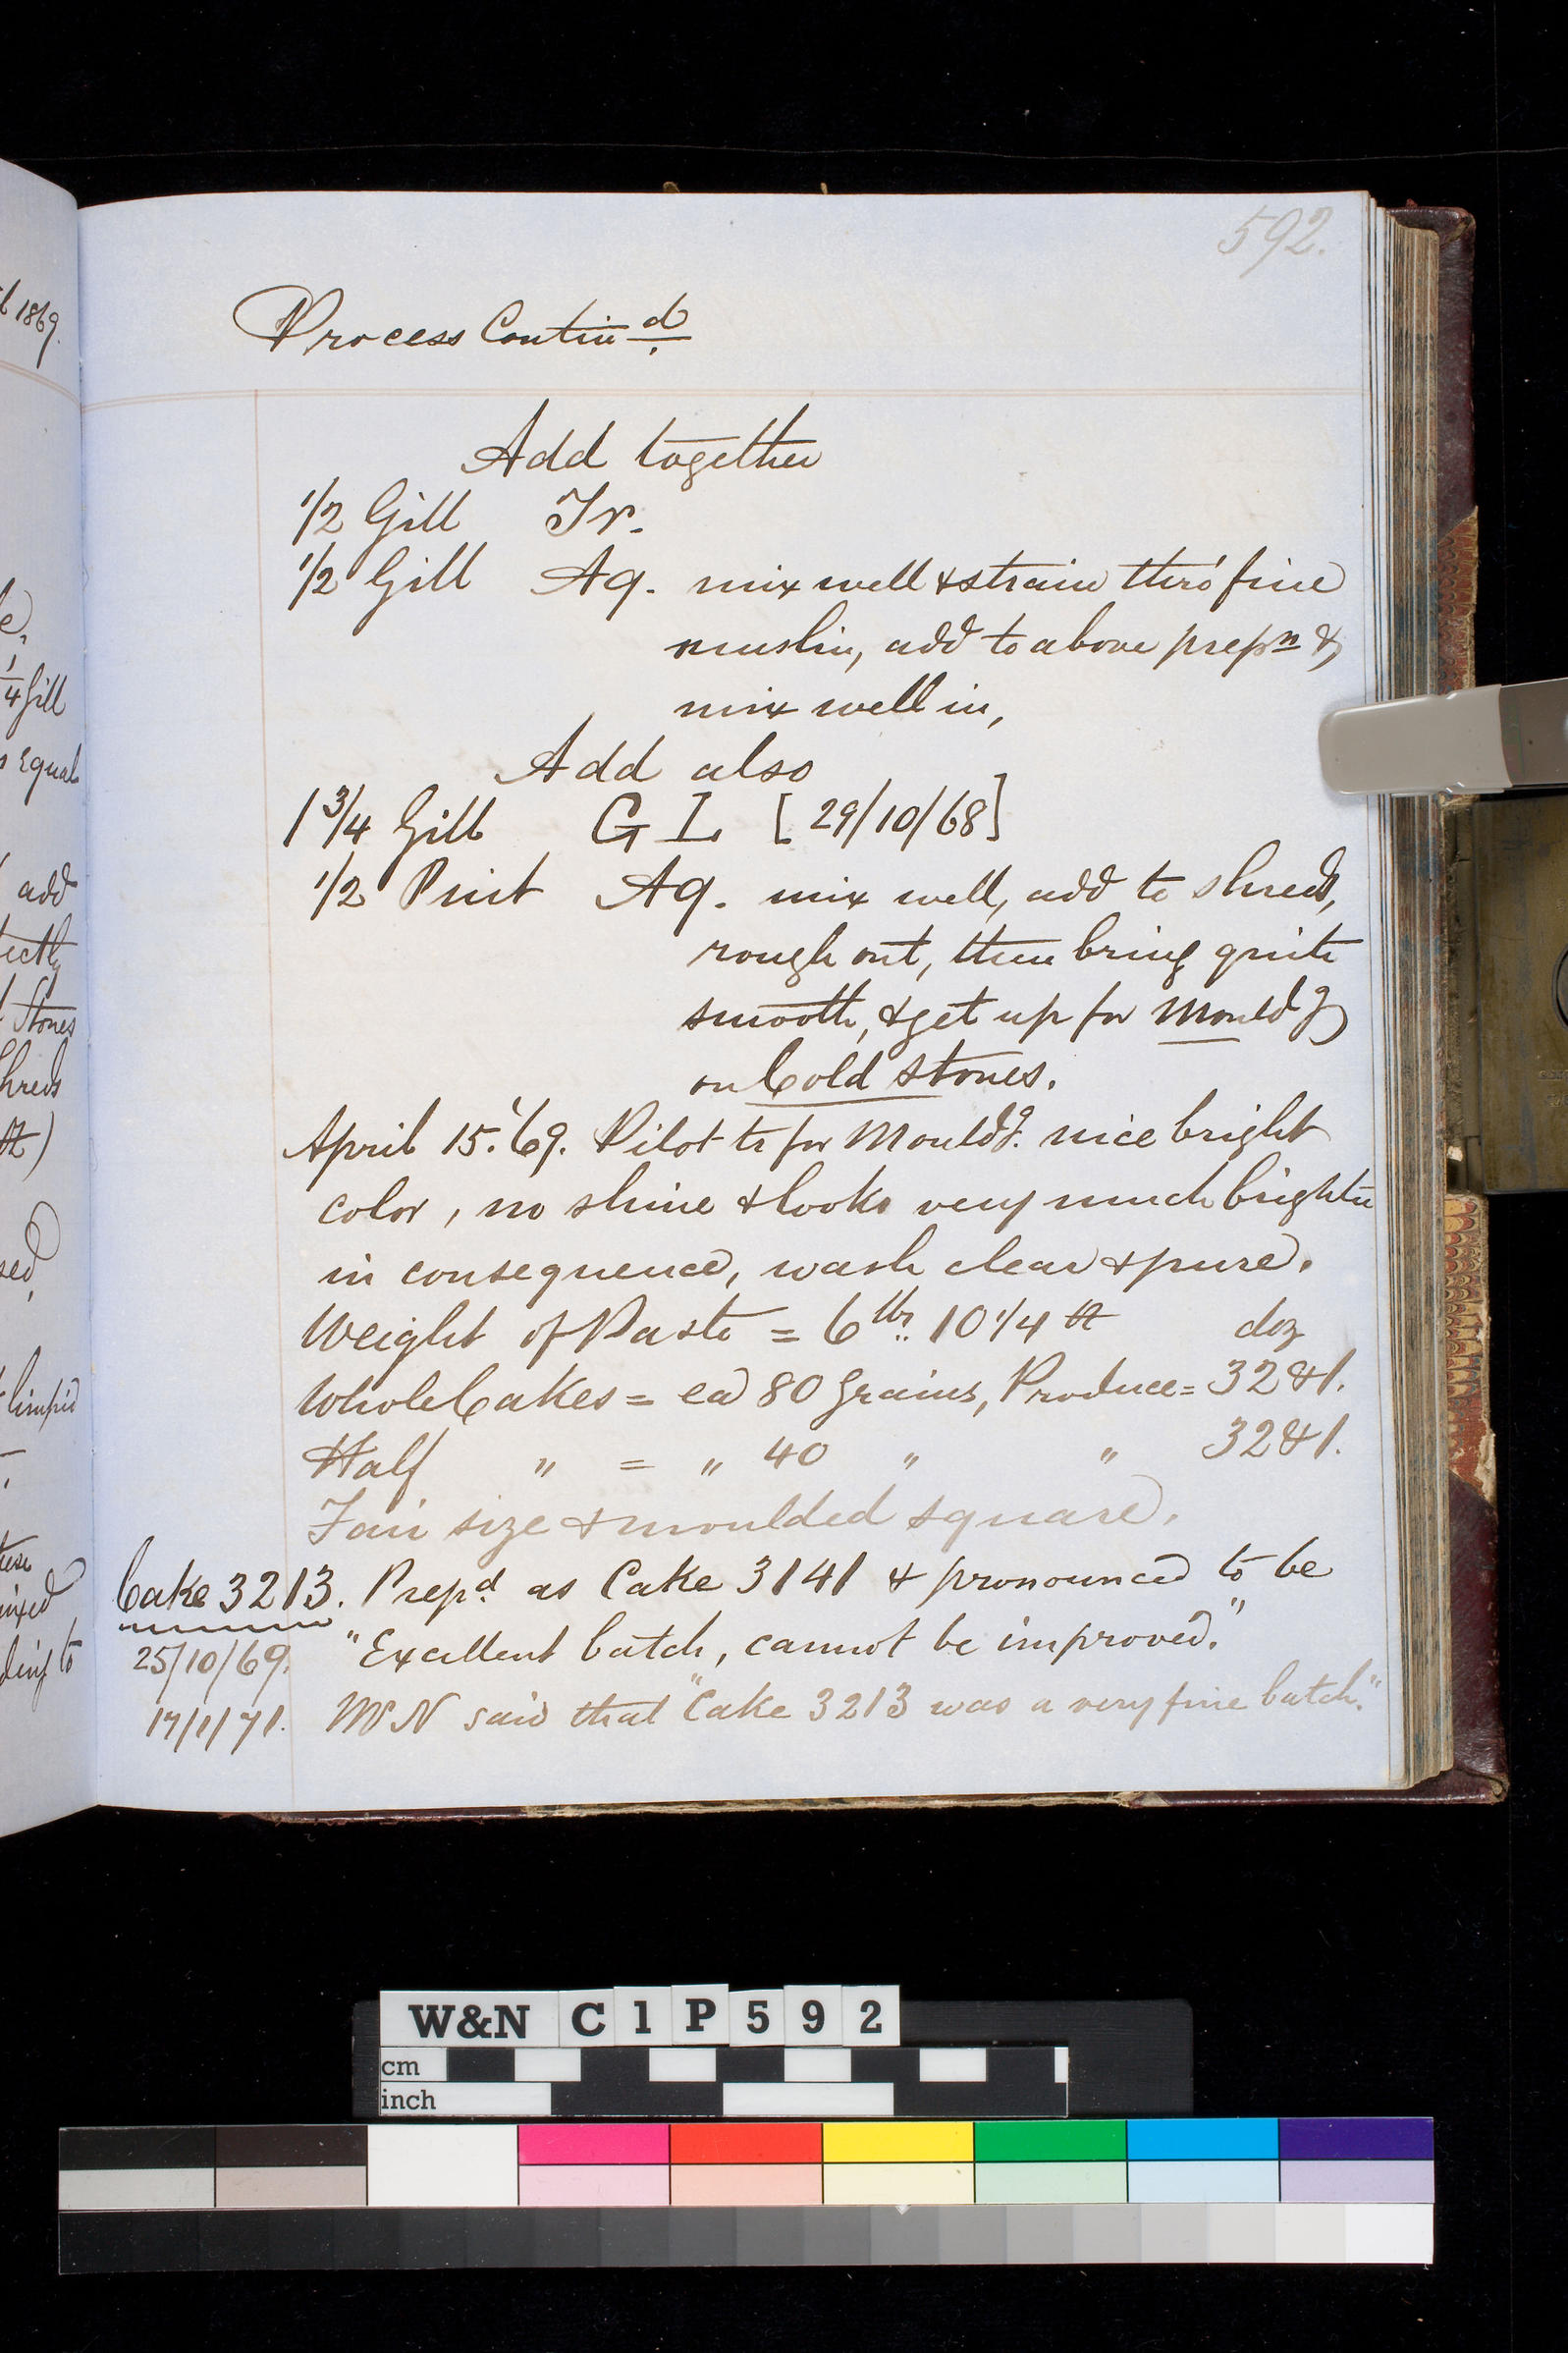 592.
Process Contin d
Add together
1/2 Gill Tr.
1/2 Gill Aq. mix well & strain thro' fine
muslin, add to above prepn &
mix well in,
Add also
1 3/4 Gill G L [29/10/68]
1/2 Pint Aq. mix well, add to shreds,
rough out, then bring quite
smooth, & get up for Mouldg
on Cold Stones.
April 15. '69. Pilot for Mouldg. nice bright
color, no shine & looks very much brighter
in consequence, wash clear & pure.
Weight of Paste = 6 lbs. 10 1/4 doz
Whole Cakes = ea 80 Grains, Produce = 32 & 1.
Half " = " 40 " " 32 & 1.
Fair size & moulded square.
Cake 3213. Prepd as Cake 3141 & pronounced to be
25/10/69. "Excellent batch, cannot be improved."
17/1/71. said that "Cake 3213 was a very fine batch."
1869.
1/4 Gill
Equal
add
Stones
limpid
to
W&N C1P592
cm
inch